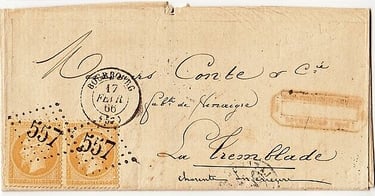 BOURBOURG
17
FEVR
66
(57)
Messieurs Conte & Cie
fabts de Vinaigre
La Tremblade
charente Inférieure
557 557